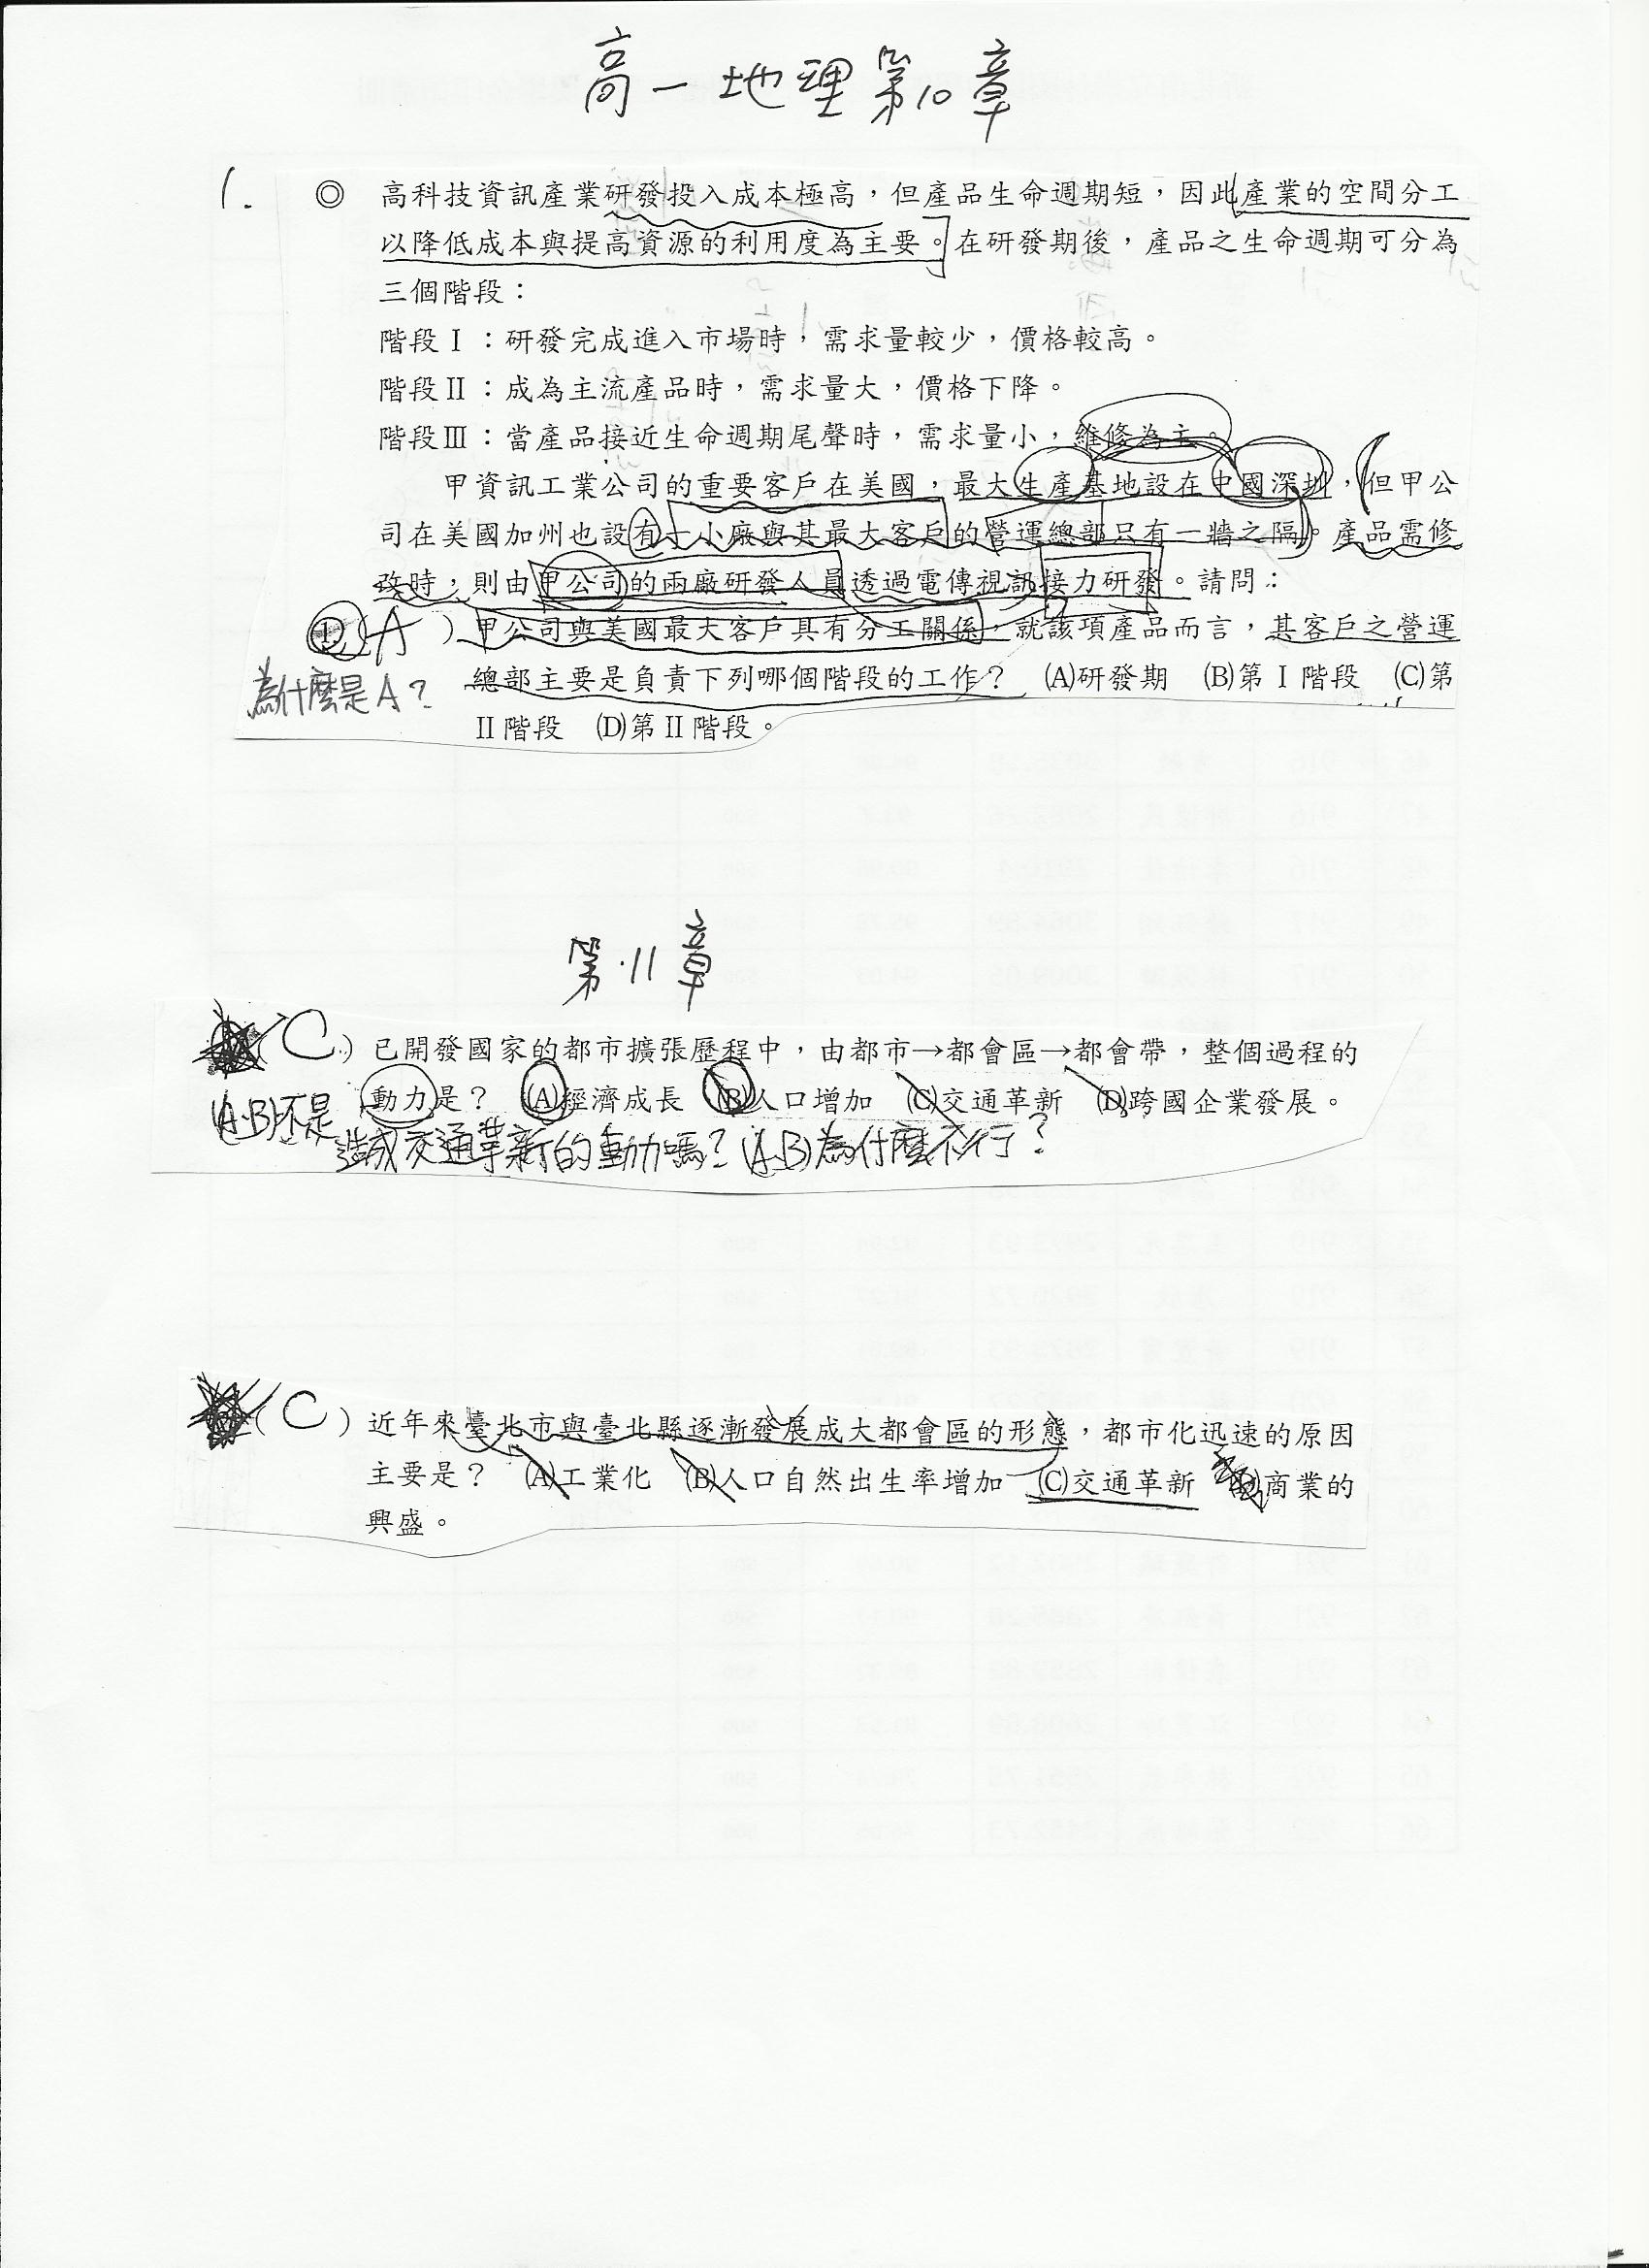 高一地理第10章
1. ◎ 高科技資訊產業研發投入成本極高，但產品生命週期短，因此產業的空間分工
以降低成本與提高資源的利用度為主要。在研發期後，產品之生命週期可分為
三個階段：
階段Ⅰ：研發完成進入市場時，需求量較少，價格較高。
階段Ⅱ：成為主流產品時，需求量大，價格下降。
階段Ⅲ：當產品接近生命週期尾聲時，需求量小，維修為主。
甲資訊工業公司的重要客戶在美國，最大生產基地設在中國深圳，但甲公
司在美國加州也設有一小廠與其最大客戶的營運總部只有一牆之隔。產品需修
改時，則由甲公司的兩廠研發人員透過電傳視訊接力研發。請問：
1.(A)甲公司與美國最大客戶具有分工關係，就該項產品而言，其客戶之營運
為什麼是A？ 總部主要是負責下列哪個階段的工作？ (A)研發期 (B)第Ⅰ階段 (C)第
II階段 (D)第II階段。
第11章
(C)已開發國家的都市擴張歷程中，由都市→都會區→都會帶，整個過程的
動力是？ (A)經濟成長 (B)人口增加 (C)交通革新 (D)跨國企業發展。
(A.B)不是造成交通革新的動力嗎？(A.B)為什麼不行？
(C)近年來臺北市與臺北縣逐漸發展成大都會區的形態，都市化迅速的原因
主要是？ (A)工業化 (B)人口自然出生率增加 (C)交通革新 (D)商業的
興盛。